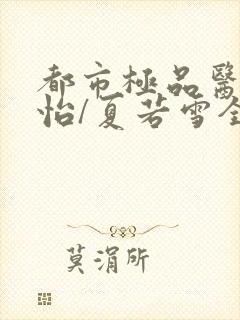 都市極品醫
怡/夏若雪全
莫涓所